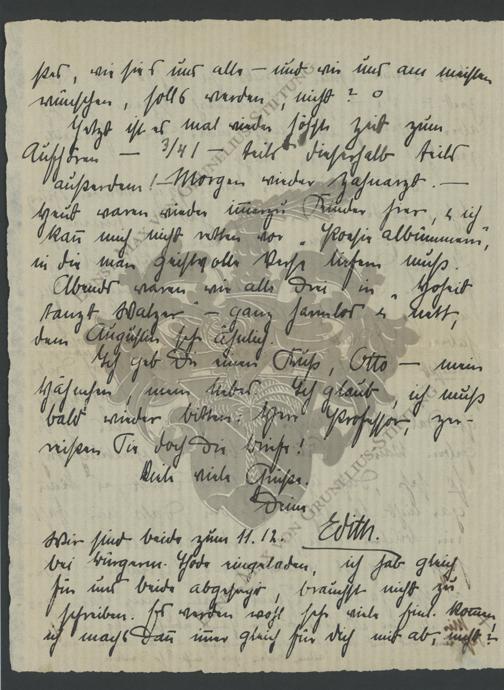 ßes, wie sie's uns alle – und wir uns am meisten
wünschen, solls werden, nicht?
Jetzt ist es mal wieder höchste Zeit zum
Aufhören — 3/41 — teils dieserhalb teils
außerdem! – Morgen wieder Zahnarzt. —
Heut waren wieder immerzu Kinder hier, u. ich
kann mich nicht retten vor „Poesie albümmern",
in die man geistvolle Verse liefern muß.
Abends waren wir alle drei in „Hoheit
tanzt Walzer" – ganz harmlos u. nett,
dem Augustin sehr ähnlich.
Ich geb Dir einen Kuß, Otto — mein
Hähnchen, mein liebes. Ich glaub, ich muß
bald wieder bitten: Herr Professor, zer-
reißen Sie doch die Briefe!
Viele viele Grüße.
Deine
Edith.
Wir sind beide zum 11.12.
bei Bürgerm. eingeladen, ich hab gleich
für uns beide abgesagt, brauchst nicht zu
schreiben. Es werden wohl sehr viele kommen
ich machs dann immer gleich für Dich mit ab, nicht?
MAX VON GRUNELIUS-STIFTUNG
MAX VON GRUNELIUS-STIFTUNG